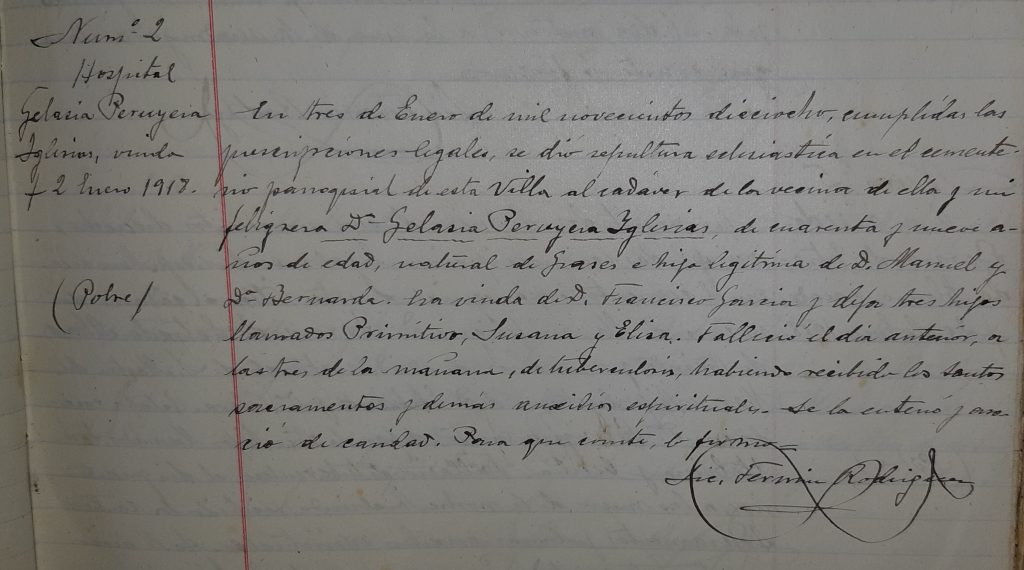 Num.º 2
Hospital
Gelasia Peruyera
Iglesias, viuda
† 2 Enero 1918.
(Pobre)
En tres de Enero de mil novecientos dieciocho, cumplidas las
prescripciones legales, se dió sepultura eclesiastica en el cemente-
rio parroquial de esta Villa al cadáver de la vecina de ella y mi
feligresa Dª Gelasia Peruyera Iglesias, de cuarenta y nueve a-
ños de edad, natural de Grases e hija legítima de D. Manuel y
Dª Bernarda. Era viuda de D. Francisco García y deja tres hijos
llamados Primitivo, Susana y Elisa. Falleció el dia anterior, a
las tres de la mañana, de tuberculosis, habiendo recibido los Santos
sacramentos y demás auxilios espirituales. Se la enterró y ofi-
ció de caridad. Para que conste, lo firmo
Lic. Fermin Rodriguez